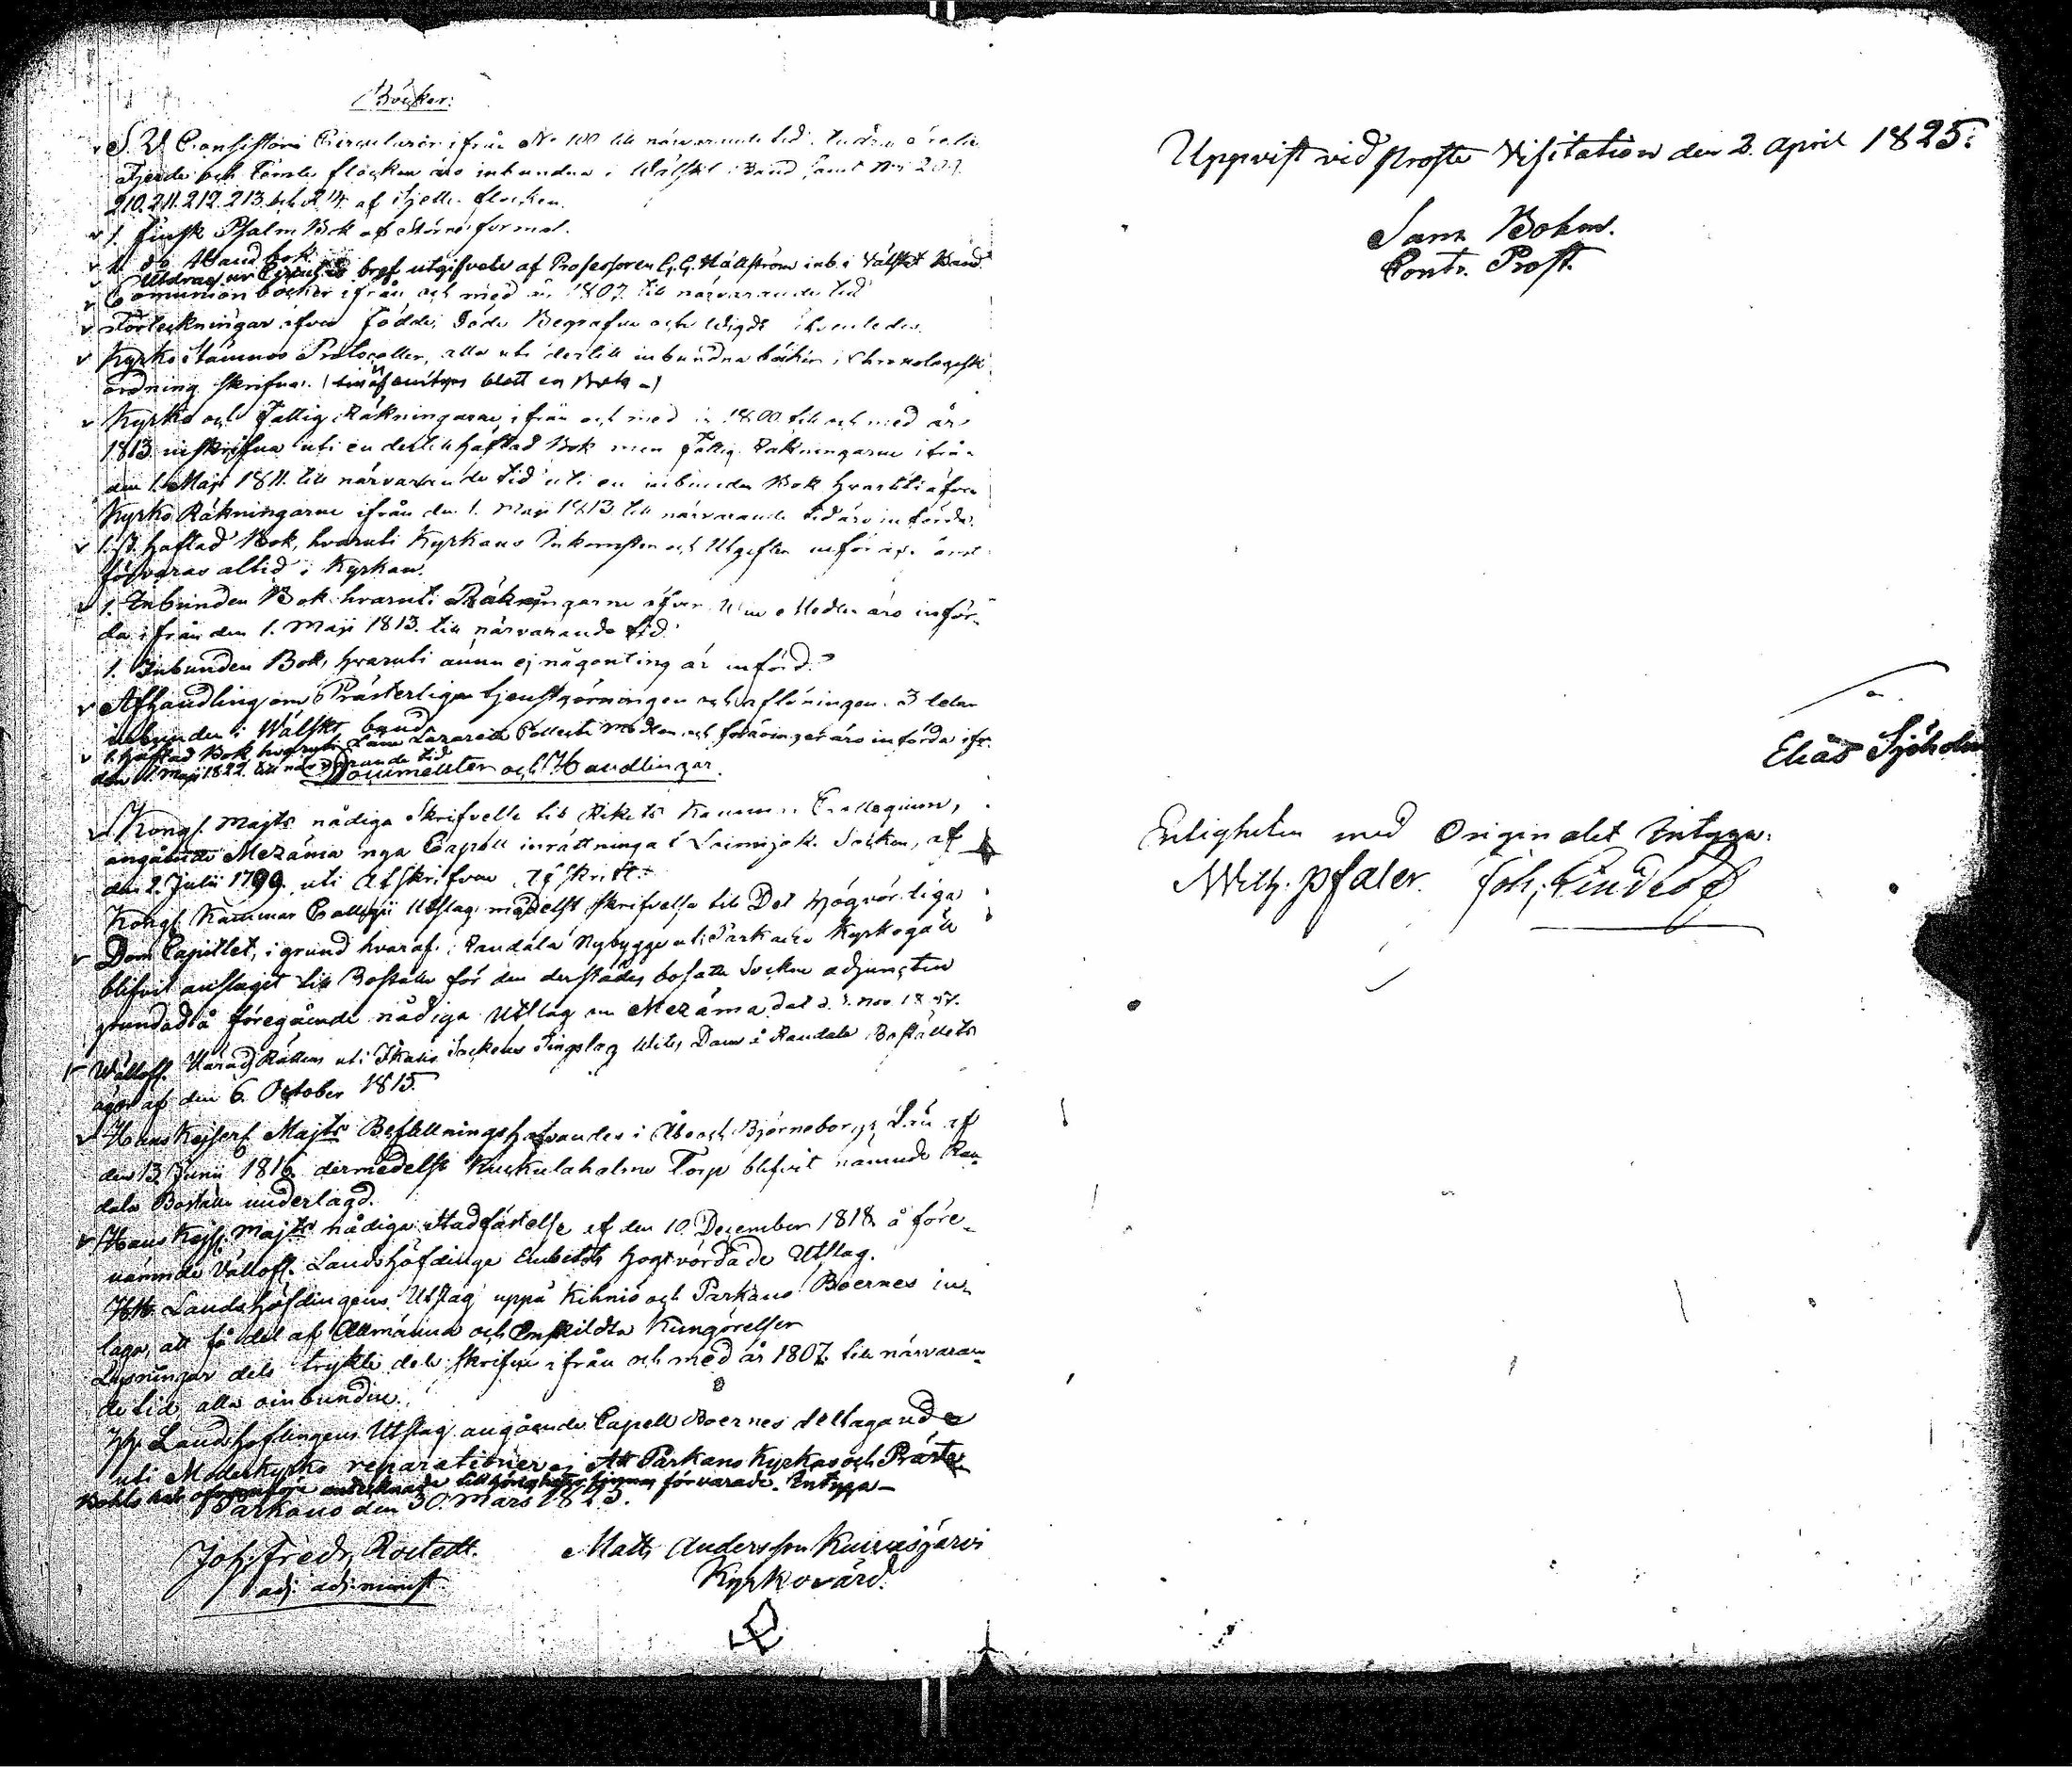 Böcker:
S. V. Consistorii Circulairer ifrån No 100 till närvarande tid.
Fjerde och Femte flocken äro inbundna i Wälskt Band samt No 209.
210. 211. 212. 213. och 214. af sjette flocken.
1. finsk Psalm Bok af större format.
1. do Hand bok.
Utdrag ur Circul. bref utgifvit af Professoren G. G. Hällström inb. i Välskt Band.
Communion böcker ifrån och med år 1807. till närvarande tid
Förteckningar öfver födde, döde Begrafne och Wigde
Kyrko Stämmos Protocoller, alla uti dertill inbundna böcker i Chronologisk
ordning skrifna. blott en Bok -)
Kyrko och Fattig Räkningarne, ifrån och med år 1800 till och med år
1813. inskrifna uti en dertill häftad Bok men fattig Räkningarne ifrån
den 1. Maji 1811. till närvarande tid uti en inbunden Bok hvaruti äfven
Kyrko Räkningarne ifrån den 1. Maji 1813 till närvarande tid äro införde.
1. st. häftad Bok, hvaruti Kyrkans Inkomster och Utgifter
förvaras altid i Kyrkan.
1. Inbunden Bok hvaruti Räkningarne öfver Win Medlen äro inför-
da ifrån den 1. Maji 1813. till närvarande tid.
1. Inbunden Bok, hvaruti ännu ej någonting är infördt
Afhandling om Prästerliga tjenstgörningen och aflöningen. 3 delar
inbunden i Wälskt band
1. häftad Bok hvaruti Läns Lazaretts Collect Medlen och äro införda ifr.
den 1. Maji 1822. till närvarande tid
Documenter och Handlingar.
Kongl. Majts nådiga Skrifvelse till Rikets Kammar Collegium,
angående Mezäma nya Capell inrättninga i Socken, af
den 2. Julii 1799. uti Afskrifven Afskrift.
Kongl. Kammar Collegii Utslag medelst skrifvelse till Det högvördiga
Dom Capitlet, i grund hvaraf Raudala Nybygge uti Parkano Kyrkogäll
blifvit anslaget till Boställe för den derstädes bosatte Sockne adjuncten
grundad å föregående nådiga Utslag om Mezäma dat. d. Nov.
Välloft. Härads Rättens uti Ikalis Sockens Tingslag Utsl. Dom å Raudala Boställets
ägor af den 6. October 1815.
Hans Kejserl. Majts Befallningshafvandes i Åbo och Björneborgs Län af
den 13 Junii 1816 dermedelst Kuckulaholme Torp blifvit nämnde Rau
dala Boställe underlagd.
Hans Kejsl. Majts nådiga Stadfästelse af den 10. December 1818. å före-
nämnde Välloft. Landshöfdinge Embetets högtvördade Utslag.
HH. Landshöfdingens Utslag uppå Kihniö och Parkano Boernes in-
laga, att få del af Allmänna och Enskildta Kungörelser
Lysningar dels tryckte dels skrifne ifrån och med år 1807. till närvaran-
de tid alla oinbundne.
HH. Landshöfdingens Utslag angående Capell Boernes deltagande
uti Moderkyrko reparationer. Att Parkano Kyrkas och Präste
Bohls antecknade tillhörigheter finnas förvarade. Intyga -
Parkano den 30. Mars 1825.
Joh. Fredr. Rostedt. Matts Andersson Kuivasjärvi
adj. adj. minist. Kyrkovärd.
Uppvist vid Proste Visitation den 2. April 1825.
Sam Bohm.
Contr. Prost.
Elias Sjöholm
Enligheten med Originalet Intyga:
Wilh. Pfaler. Joh. Lindroos